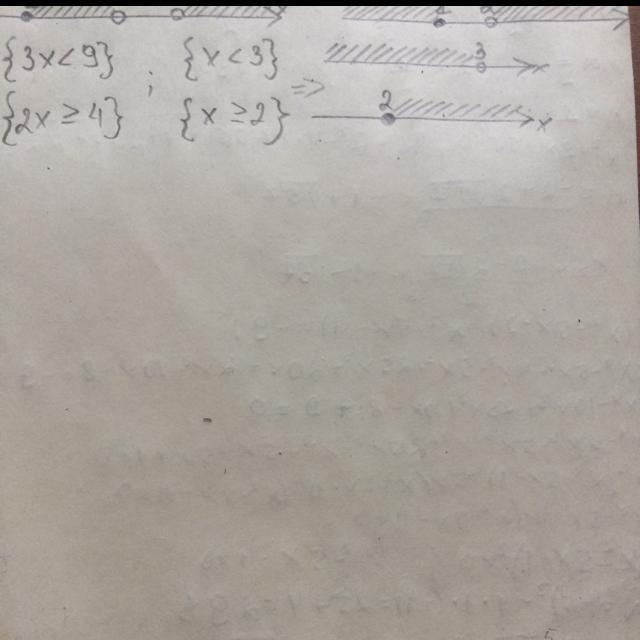 {3x<9} ; {x<3} => 3 x
{2x≥4} {x≥2} 2 x